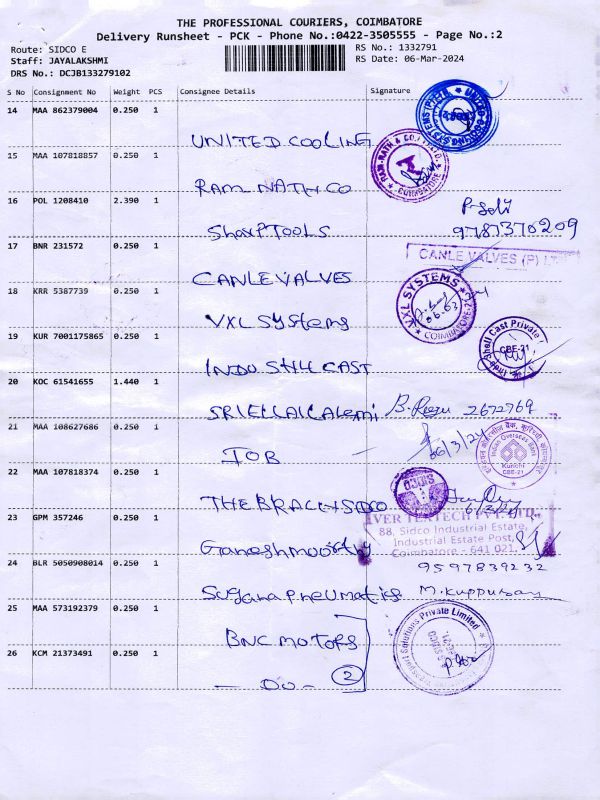 THE PROFESSIONAL COURIERS, COIMBATORE
Delivery Runsheet - PCK - Phone No.:0422-3505555 - Page No.:2
Route: SIDCO E RS No.: 1332791
Staff: JAYALAKSHMI RS Date: 06-Mar-2024
DRS No.: DCJB133279102
S No Consignment No Weight PCS Consignee Details Signature
14 MAA 862379004 0.250 1
UNITED COOLING
15 MAA 107818857 0.250 1
RAM NATH CO
COIMBATORE
16 POL 1208410 2.390 1
Sharp TOOLS
9787370209
17 BNR 231572 0.250 1
CANLE VALVES (P) LT
CANLE VALVES
18 KRR 5387739 0.250 1
VXL SYSTEMS
COIMBATORE-21
VXL SYStems
19 KUR 7001175865 0.250 1
Cast Private
CBE-21
20 KOC 61541655 1.440 1
2672769
21 MAA 108627686 0.250 1
IOB
06/3/24
Indian Overseas Bank
Kurichi
CBE-21
22 MAA 107818374 0.250 1
SIDCO
23 GPM 357246 0.250 1
VER TEXTECH PVT. LTD.,
88, Sidco Industrial Estate,
Industrial Estate Post,
Coimbatore - 641 021.
Ganeshmoorthy
24 BLR 5050908014 0.250 1
9597839232
Suganapneumatics M. Kuppusamy
25 MAA 573192379 0.250 1
Solutions Private Limited
BNC MOTORS
26 KCM 21373491 0.250 1
- DO - 2